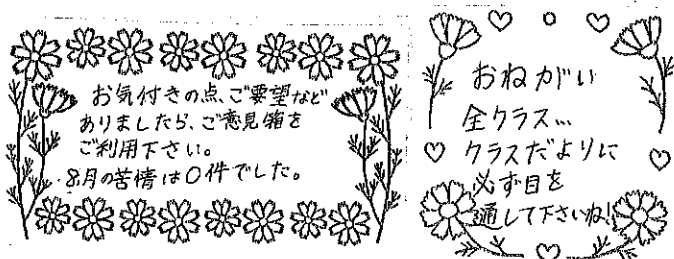 お気付きの点、ご要望など
ありましたら、ご意見箱を
ご利用下さい。
8月の苦情は0件でした。
おねがい
全クラス…
クラスだよりに
必ず目を
通して下さいね!